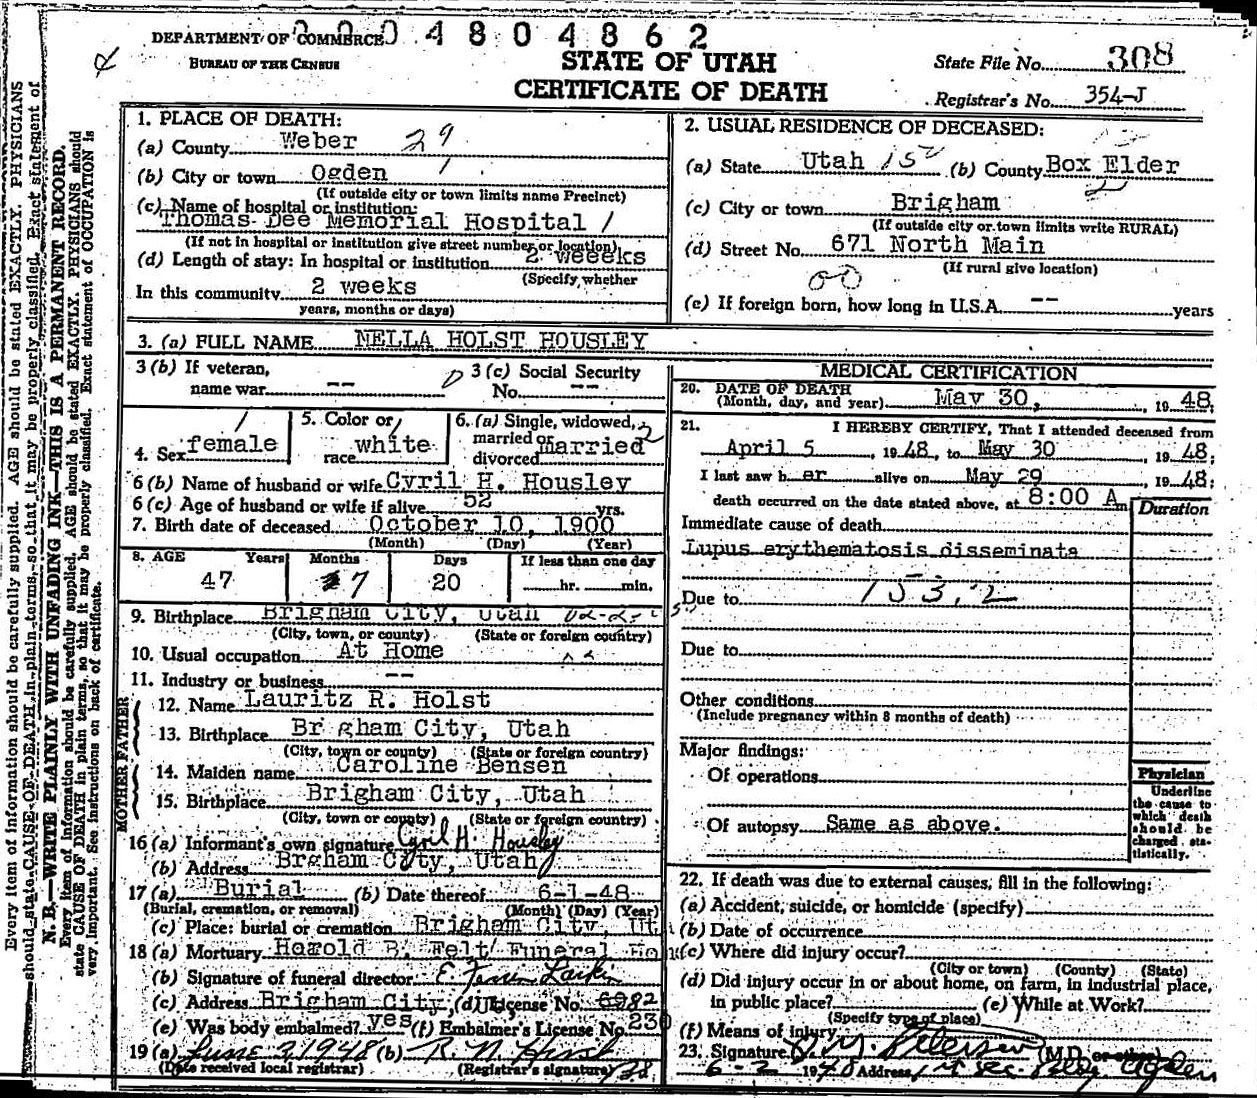 0004804862
DEPARTMENT OF COMMERCE
BUREAU OF THE CENSUS
STATE OF UTAH
CERTIFICATE OF DEATH
State File No. 308
Registrar's No. 354-J
Every item of information should be carefully supplied. AGE should be stated EXACTLY. PHYSICIANS
should state CAUSE OF DEATH in plain terms, so that it may be properly classified. Exact statement of
N. B.—WRITE PLAINLY WITH UNFADING INK—THIS IS A PERMANENT RECORD.
Every item of information should be carefully supplied. AGE should be stated EXACTLY. PHYSICIANS should
state CAUSE OF DEATH in plain terms, so that it may be properly classified. Exact statement of OCCUPATION is
very important. See instructions on back of certificate.
1. PLACE OF DEATH:
(a) County Weber 29
(b) City or town Ogden 1
(If outside city or town limits name Precinct)
(c) Name of hospital or institution:
Thomas Dee Memorial Hospital 1
(If not in hospital or institution give street number or location)
(d) Length of stay: In hospital or institution 2 weeeks
(Specify whether
In this community 2 weeks
years, months or days)
2. USUAL RESIDENCE OF DECEASED:
(a) State Utah 15 (b) County Box Elder
2
(c) City or town Brigham
(If outside city or town limits write RURAL)
(d) Street No. 671 North Main
(If rural give location)
00
(e) If foreign born, how long in U.S.A. -- years
3. (a) FULL NAME NELLA HOLST HOUSLEY
3 (b) If veteran,
name war --
3 (c) Social Security
No. --
4. Sex female 1
5. Color or
race white 1
6. (a) Single, widowed,
married or
divorced married 2
6 (b) Name of husband or wife Cyril H. Housley
6 (c) Age of husband or wife if alive 52 yrs.
7. Birth date of deceased October 10, 1900
(Month) (Day) (Year)
8. AGE Years Months Days If less than one day
47 7 20 hr. min.
9. Birthplace Brigham City, Utah
(City, town, or county) (State or foreign country)
10. Usual occupation At Home
11. Industry or business --
FATHER
12. Name Lauritz R. Holst
13. Birthplace Br gham City, Utah
(City, town or county) (State or foreign country)
MOTHER
14. Maiden name Caroline Bensen
15. Birthplace Brigham City, Utah
(City, town or county) (State or foreign country)
16 (a) Informant's own signature Cyril H. Housley
(b) Address Brgham City, Utah
17 (a) Burial (b) Date thereof 6-1-48
(Burial, cremation, or removal) (Month) (Day) (Year)
(c) Place: burial or cremation Brigham City, Ut
18 (a) Mortuary Harold B. Felt Funeral Ho
(b) Signature of funeral director E Larkin
(c) Address Brigham City, (d) License No. 82
(e) Was body embalmed? yes (f) Embalmer's License No. 230
19 (a) June 2 1948 (b) R. N. Hirst
(Date received local registrar) (Registrar's signature)
MEDICAL CERTIFICATION
20. DATE OF DEATH
(Month, day, and year) May 30, , 19 48
21. I HEREBY CERTIFY, That I attended deceased from
April 5 , 19 48, to May 30 , 19 48;
I last saw h er alive on May 29 , 19 48;
death occurred on the date stated above, at 8:00 A m
Duration
Immediate cause of death
Lupus erythematosis disseminata
Due to 153.2
Due to
Other conditions
(Include pregnancy within 8 months of death)
Major findings:
Of operations
Of autopsy Same as above.
Physician
Underline
the cause to
which death
should be
charged statistically.
22. If death was due to external causes, fill in the following:
(a) Accident, suicide, or homicide (specify)
(b) Date of occurrence
(c) Where did injury occur?
(City or town) (County) (State)
(d) Did injury occur in or about home, on farm, in industrial place,
in public place? (e) While at Work?
(Specify type of place)
(f) Means of injury
23. Signature Petersen (M.D. or other)
6-2 19 48 Address 1st Sec. Bldg. Ogden